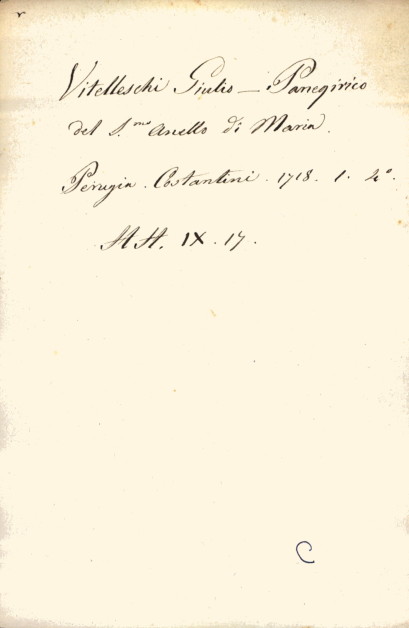 Vitelleschi Giulio — Panegirico
del S.mo Anello di Maria.
Perugia. Costantini. 1718. 1. 4°.
AA. IX. 17.
C